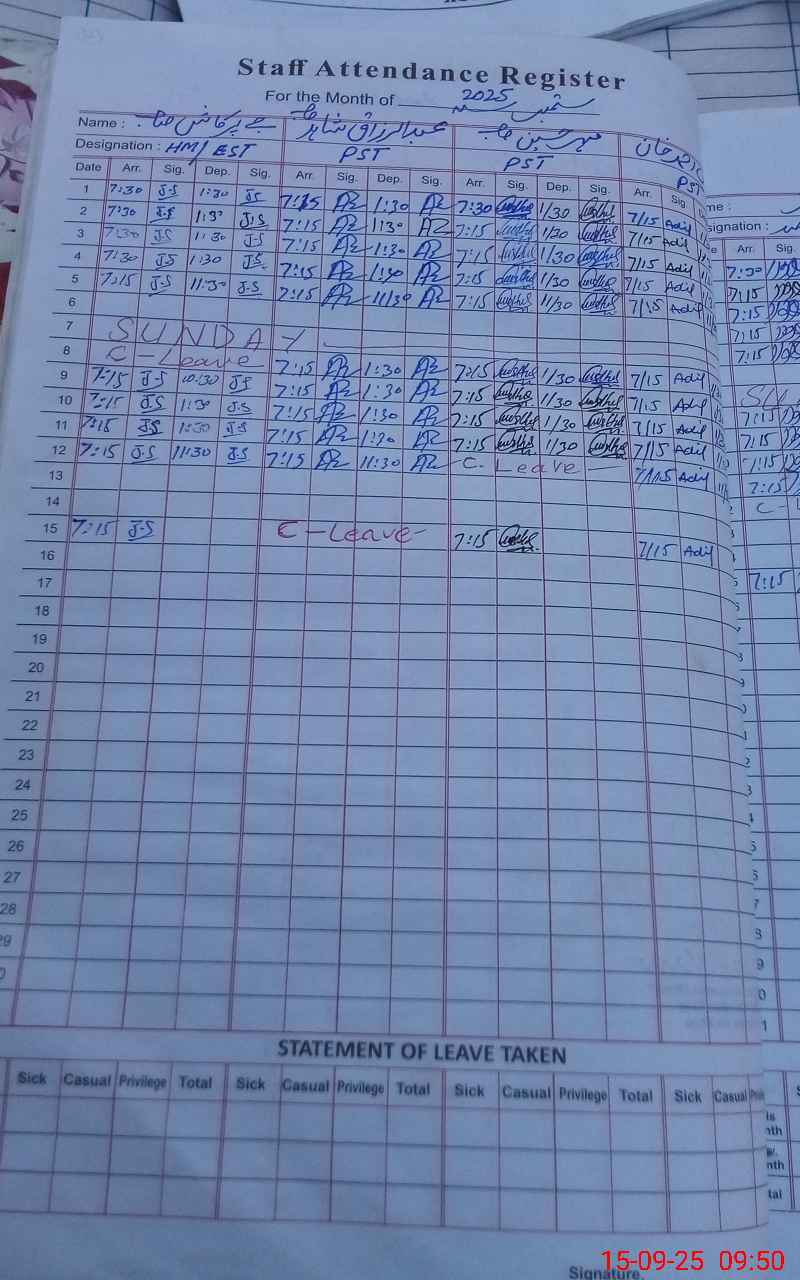 Staff Attendance Register
For the Month of ستمبر 2025
Name : جے پرکاش صاحب عبدالرزاق شاہر صاحب مہر حسین صاحب خان
Designation : HM/EST PST PST PST
Date Arr. Sig. Dep. Sig. Arr. Sig. Dep. Sig. Arr. Sig. Dep. Sig. Arr. Sig
1 7:30 J.S 1:30 J.S 7:15 AR 1:30 AR 7:30 1/30 7/15 Adil
2 7:30 J.S 1:30 J.S 7:15 AR 1:30 AR 7:15 1/30 7/15 Adil
3 7:30 J.S 1:30 J.S 7:15 AR 1:30 AR 7:15 1/30 7/15 Adil
4 7:30 J.S 1:30 J.S 7:15 AR 1:30 AR 7:15 1/30 7/15 Adil
5 7:15 J.S 11:30 J.S 7:15 AR 11/30 AR 7:15 11/30 7/15 Adil
6
7 SUNDAY
8 C-Leave 7:15 AR 1:30 AR 7:15 1/30 7/15 Adil
9 7:15 J.S 10:30 J.S 7:15 AR 1:30 AR 7:15 1/30 7/15 Adil
10 7:15 J.S 1:30 J.S 7:15 AR 1:30 AR 7:15 1/30 7/15 Adil
11 7:15 J.S 1:30 J.S 7:15 AR 1:30 AR 7:15 1/30 7/15 Adil
12 7:15 J.S 11:30 J.S 7:15 AR 11:30 AR C. Leave 7/15 Adil
13
14
15 7:15 J.S C-Leave 7:15 7/15 Adil
16
17
18
19
20
21
22
23
24
25
26
27
28
29
STATEMENT OF LEAVE TAKEN
Sick Casual Privilege Total Sick Casual Privilege Total Sick Casual Privilege Total Sick Casual
Signature.
Arr. Sig.
7:30
7:15
7:15
7:15
7:15
7:15
7:15
7:15
7:15
7:15
15-09-25 09:50